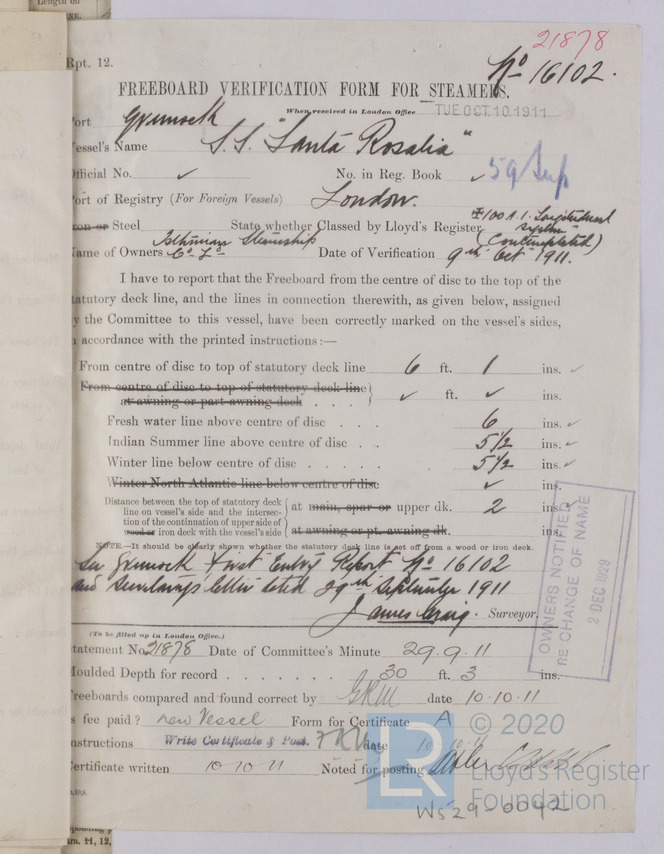 Length on
21878
Rpt. 12.
No 16102.
FREEBOARD VERIFICATION FORM FOR STEAMERS.
When received in London Office TUE OCT. 10. 1911
Port Greenock
Vessel's Name S.S. "Santa Rosalia"
Official No. ✓ No. in Reg. Book ✓ 59 Sup
Port of Registry (For Foreign Vessels) London.
Iron or Steel State whether Classed by Lloyd's Register 100 A.1. Longitudinal
System
(Contemplated)
Name of Owners Isthmian Steamship Co Ld Date of Verification 9th Oct 1911.
I have to report that the Freeboard from the centre of disc to the top of the
statutory deck line, and the lines in connection therewith, as given below, assigned
by the Committee to this vessel, have been correctly marked on the vessel's sides,
in accordance with the printed instructions:—
From centre of disc to top of statutory deck line 6 ft. 1 ins. ✓
From centre of disc to top of statutory deck line
at awning or part awning deck . . . ✓ ft. ✓ ins.
Fresh water line above centre of disc . . . 6 ins. ✓
Indian Summer line above centre of disc . . 5 1/2 ins. ✓
Winter line below centre of disc . . . . . 5 1/2 ins. ✓
Winter North Atlantic line below centre of disc ✓ ins.
Distance between the top of statutory deck
line on vessel's side and the intersec-
tion of the continuation of upper side of
wood or iron deck with the vessel's side
at main, spar or upper dk. 2 ins.
at awning or pt. awning dk. ins.
NOTE.—It should be clearly shown whether the statutory deck line is set off from a wood or iron deck.
See Greenock First Entry Report No 16102
and Secretary's letter dated 29th September 1911
James Craig. Surveyor.
OWNERS NOTIFIED
RE CHANGE OF NAME
2 DEC 1929
(To be filled up in London Office.)
Statement No. 21878 Date of Committee's Minute 29.9.11
Moulded Depth for record . . . . . . . 30 ft. 3 ins.
Freeboards compared and found correct by date 10.10.11
Is fee paid? new Vessel Form for Certificate A
Instructions Write Certificate & Post. date 10.10.11
Certificate written 10 10 11 Noted for posting
© 2020
Lloyd's Register
Foundation
LR
W529-0042